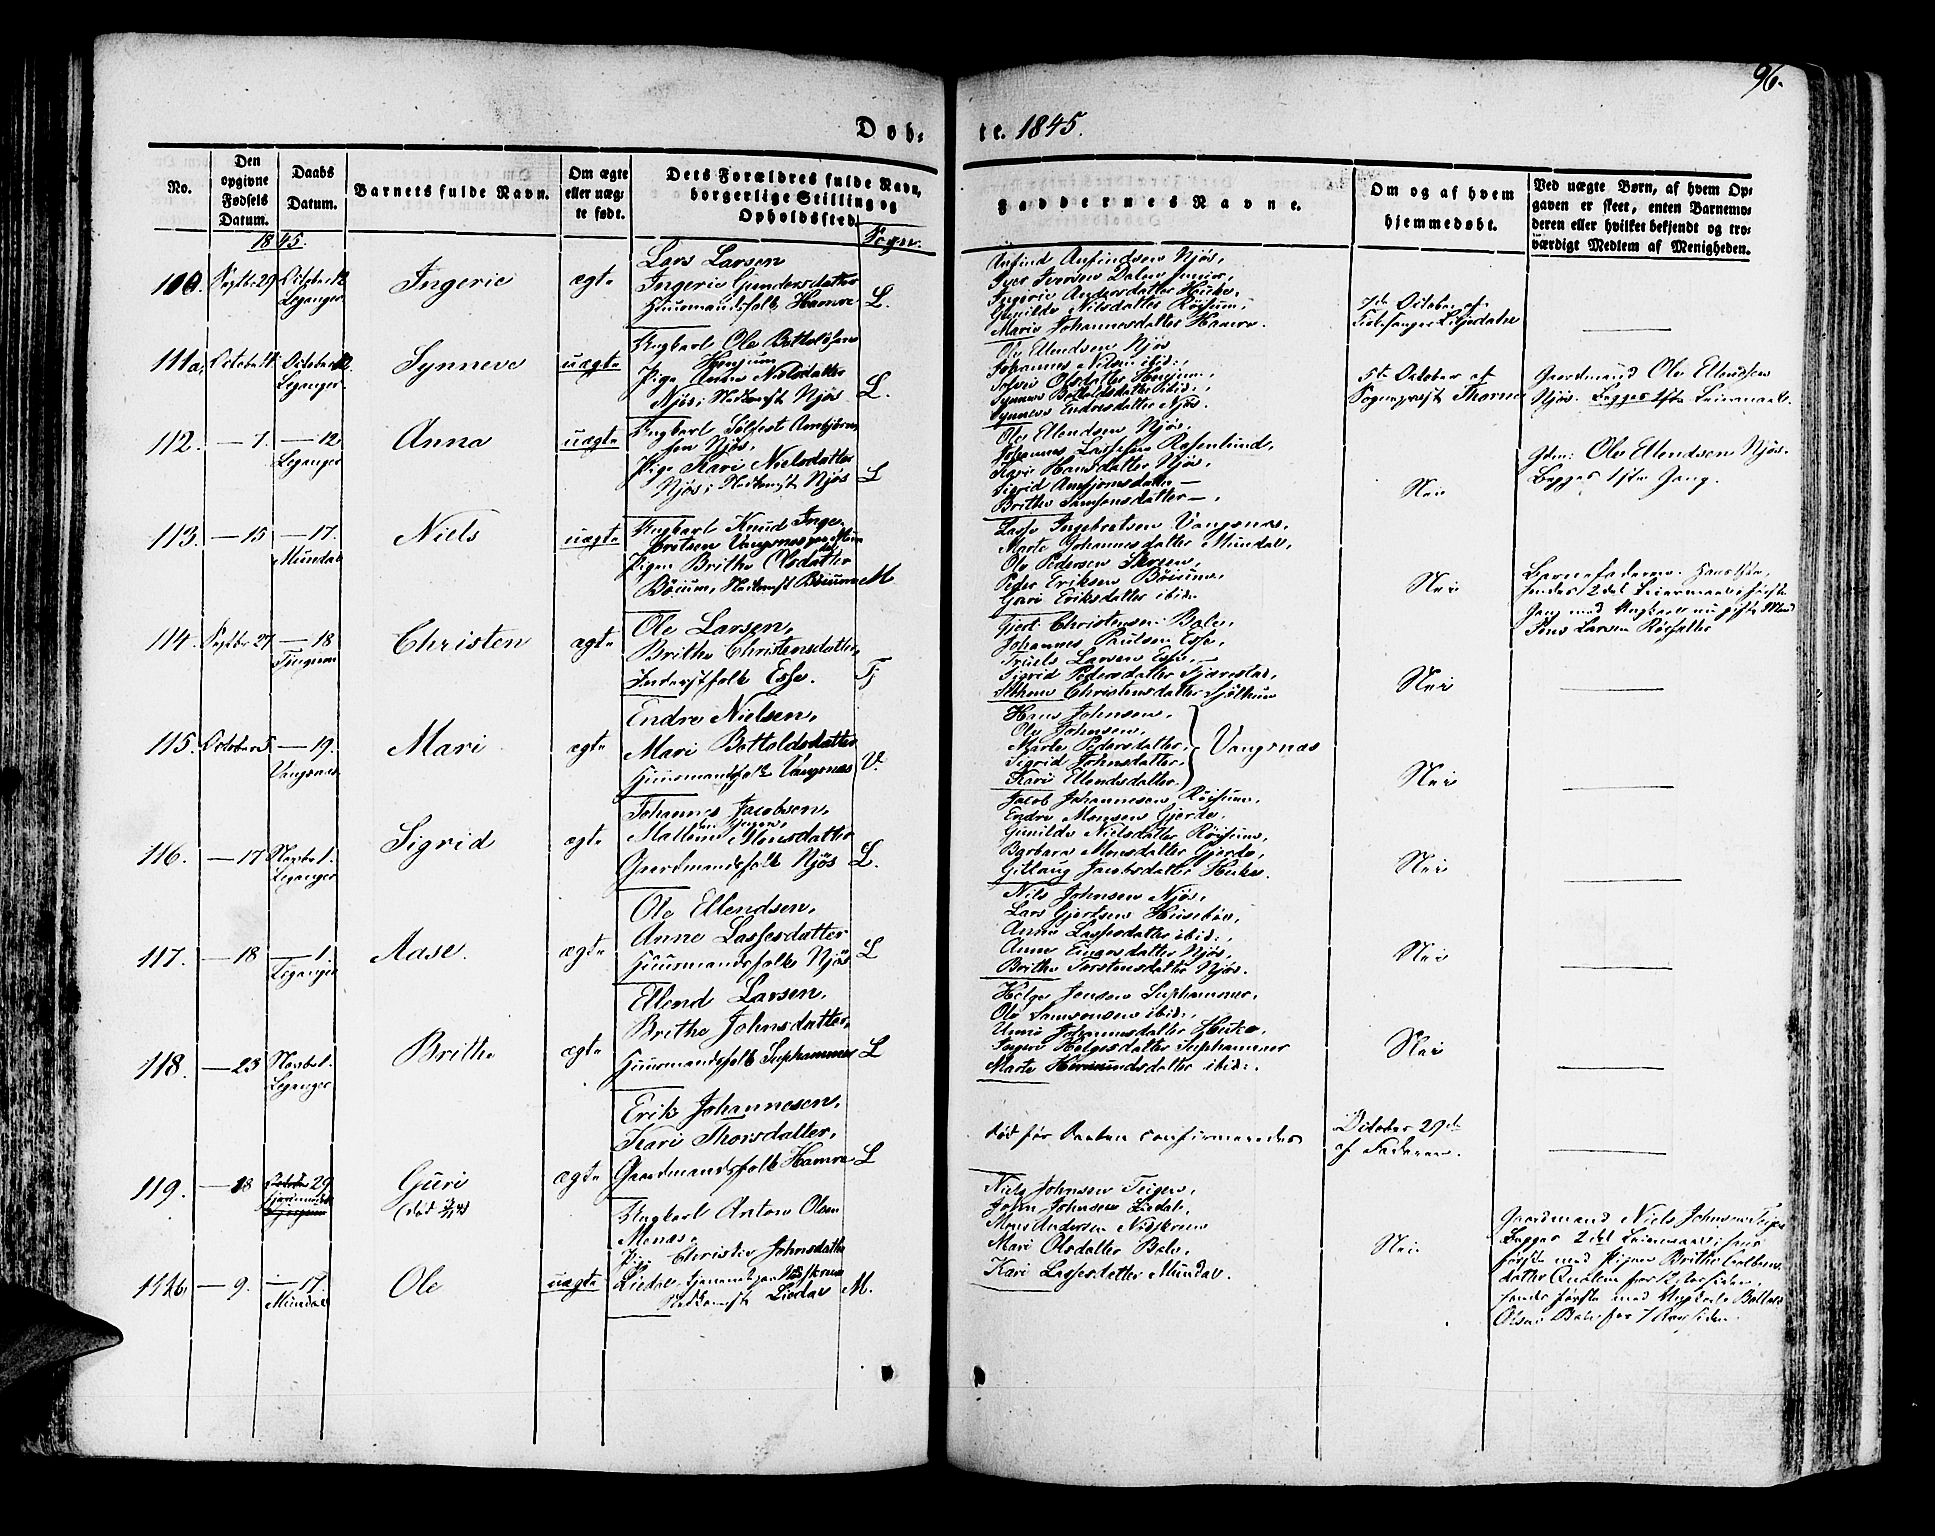 96.
Døb-
te. 1845.
No.
Den
opgivne
Fødsels
Datum.
Daabs
Datum.
Barnets fulde Navn.
Om ægte
eller uæg-
te født.
Dets Forældres fulde Navn,
borgerlige Stilling og
Opholdssted.
Sogn.
Faddernes Navne.
Om og af hvem
hjemmedøbt.
Ved uægte Børn, af hvem Op-
gaven er skeet, enten Barnemo-
deren eller hvilket bekjendt og tro-
værdigt Medlem af Menigheden.
1845.
110.
Septbr 29
October 12
Leganger
Ingerie
ægte
Lars Larsen
Ingerie Gundersdatter
Huusmandsfolk Hamre
L.
Anfind Anfindsen Njøs,
Iver Iversen Dalen junior,
Ingerie Andersdatter Henke,
Gunilde Nilsdatter Röisum,
Marie Johannesdatter Hamre.
7de October af
111a,
October 4
October 12.
Leganger
Synneve
uægte
Ungkarl Ole Botholdsen
Henjum
Pige Anna Nielsdatter
Njøs; Nedkomst Njøs
L.
Ole Ellendsen Njøs
Johannes Nilsen ibid:,
Synneve Botholdsdatter ibid:,
Synneve Endresdatter Njøs.
5te October af
Sognepræst Thorne
Gaardmand Ole Ellendsen
Njøs. Begges 1ste Leiermaal.
112.
— 7.
— 12
Leganger
Anna
uægte
Ungkarl Sølfest Ambjørn-
sen Njøs,
Pige Kari Nielsdatter
Njøs; Nedkomst Njøs
L
Ole Ellendsen Njøs,
Johannes Lassesen Rosenlund,
Kari Hansdatter Njøs,
Sigrid Ambjørnsdatter —
Brithe Samsonsdatter —,
Nei
Gdm: Ole Ellendsen Njøs.
Begges 1ste Gang.
113.
— 15
— 17.
Mundal
Niels
uægte
Ungkarl Knud Inge-
bretsen Vangsnes
Pigen Brithe Olsdatter
Böium, Nedkomst Böium
M
Lasse Ingebretsen Vangsnes,
Marte Johannesdatter Mundal,
Ole Pedersen Skreen,
Peder Eriksen Böium,
Gari Eriksdatter ibid:
Nei
Barnefaderen.
hendes 2det Leiermaal; første
Gang med Ungkarl nu gifte Mand
Jens Larsen Røysatter
114.
Septbr 27
— 18
Tjugum
Christen
ægte
Ole Larsen,
Brithe Christensdatter,
Inderstfolk Esse.
Tj
Gjert Christensen Bale,
Johannes Paulsen Esse,
Truels Larsen Esse,
Sigrid Pedersdatter Tjærestad,
Nei
115.
October 5.
— 19.
Vangsnes
Mari
ægte
Endre Nielsen,
Mari Botholdsdatter
Huusmandsfolk Vangsnes
V.
Hans Johnsen,
Ole Johnsen,
Marte Pedersdatter,
Sigrid Johnsdatter,
Kari Ellendsdatter.
Vangsnæs
Nei
116.
— 17
Novbr 1.
Leganger
Sigrid
ægte
Johannes Jacobsen,
Mallene Monsdatter
Gaardmandsfolk Njøs
L.
Jacob Johannesen Röisum,
Endre Monsen Gjerde,
Gunilde Nielsdatter Röisum,
Barbara Monsdatter Gjerde,
Gitlaug Jacobsdatter Henke.
Nei
117.
— 18
— 1.
Leganger
Aase.
ægte
Ole Ellendsen,
Anne Lassesdatter
Huusmandsfolk Njøs
L
Nils Johnsen Njøs,
Lars Gjertsen Husebøe,
Anne Lassesdatter ibid:,
Anne Einarsdatter Njøs,
Brithe Torstensdatter Njøs.
Nei
118.
— 23
Novbr 1.
Leganger
Brithe
ægte
Ellend Larsen,
Brithe Johnsdatter,
Huusmandsfolk Suphammer
L
Helge Jensen Suphammer,
Ole Samsonsen ibid:,
Unni Johannesdatter Henke,
Ingeri Helgesdatter Suphammer
Marte Hermundsdatter ibid:.
Nei
119.
— 18
October 29
Guri
(død
ægte
Erik Johannesen,
Kari Thorsdatter,
Gaardmandsfolk Hamre
L
død før Daaben confirmeredes
October 29de
af Faderen.
111b,
— 9.
— 17.
Mundal
Ole
uægte
Ungkarl Anton Olsen
Menæs,
Pige Christie Johnsdatter
Liedal,
Nedkomst Liedal
M.
Niels Johnsen Teigen,
John Johnsen Liedal,
Mons Andersen Nedskreen
Mari Olsdatter Bale,
Kari Lassesdatter Mundal.
Nei.
Gaardmand Niels Johnsen Teigen
Begges 2det Leiermaal; hans
første med Pigen Brithe
datter Qualem for 12 Aar siden,
hendes første med Ungkarl
Olsen Bale for 7 Aar siden.